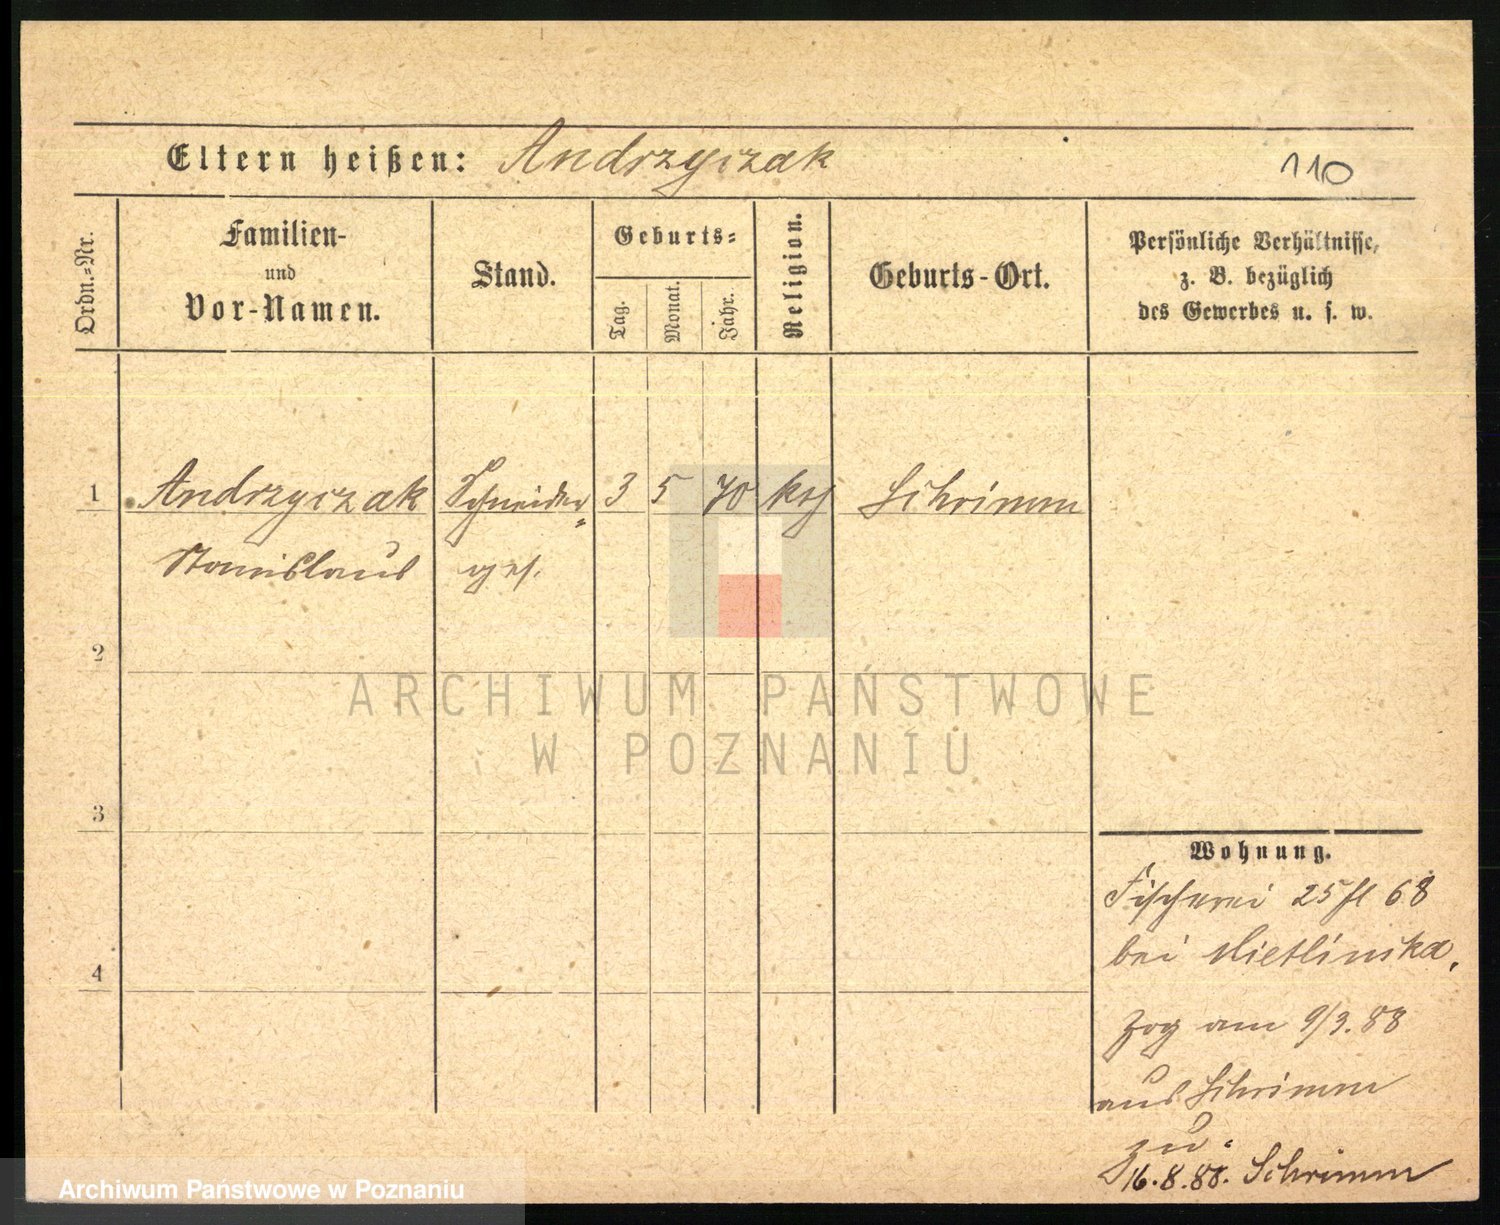 Eltern heißen: Andrzyczak
110
Ordn.=Nr.
Familien-
und
Vor-Namen.
Stand.
Geburts=
Tag.
Monat.
Jahr.
Religion.
Geburts-Ort.
Persönliche Verhältnisse,
z. B. bezüglich
des Gewerbes u. s. w.
1 Andrzyczak Schneider= 3 5 70 kth Schrimm
Stanislaus ges.
2
ARCHIWUM PAŃSTWOWE
W POZNANIU
3
Wohnung.
Fischerei 25 fl 68
bei Mietlinska,
4
Zog am 9/3.88
aus Schrimm
zu.
16.8.88. Schrimm
Archiwum Państwowe w Poznaniu